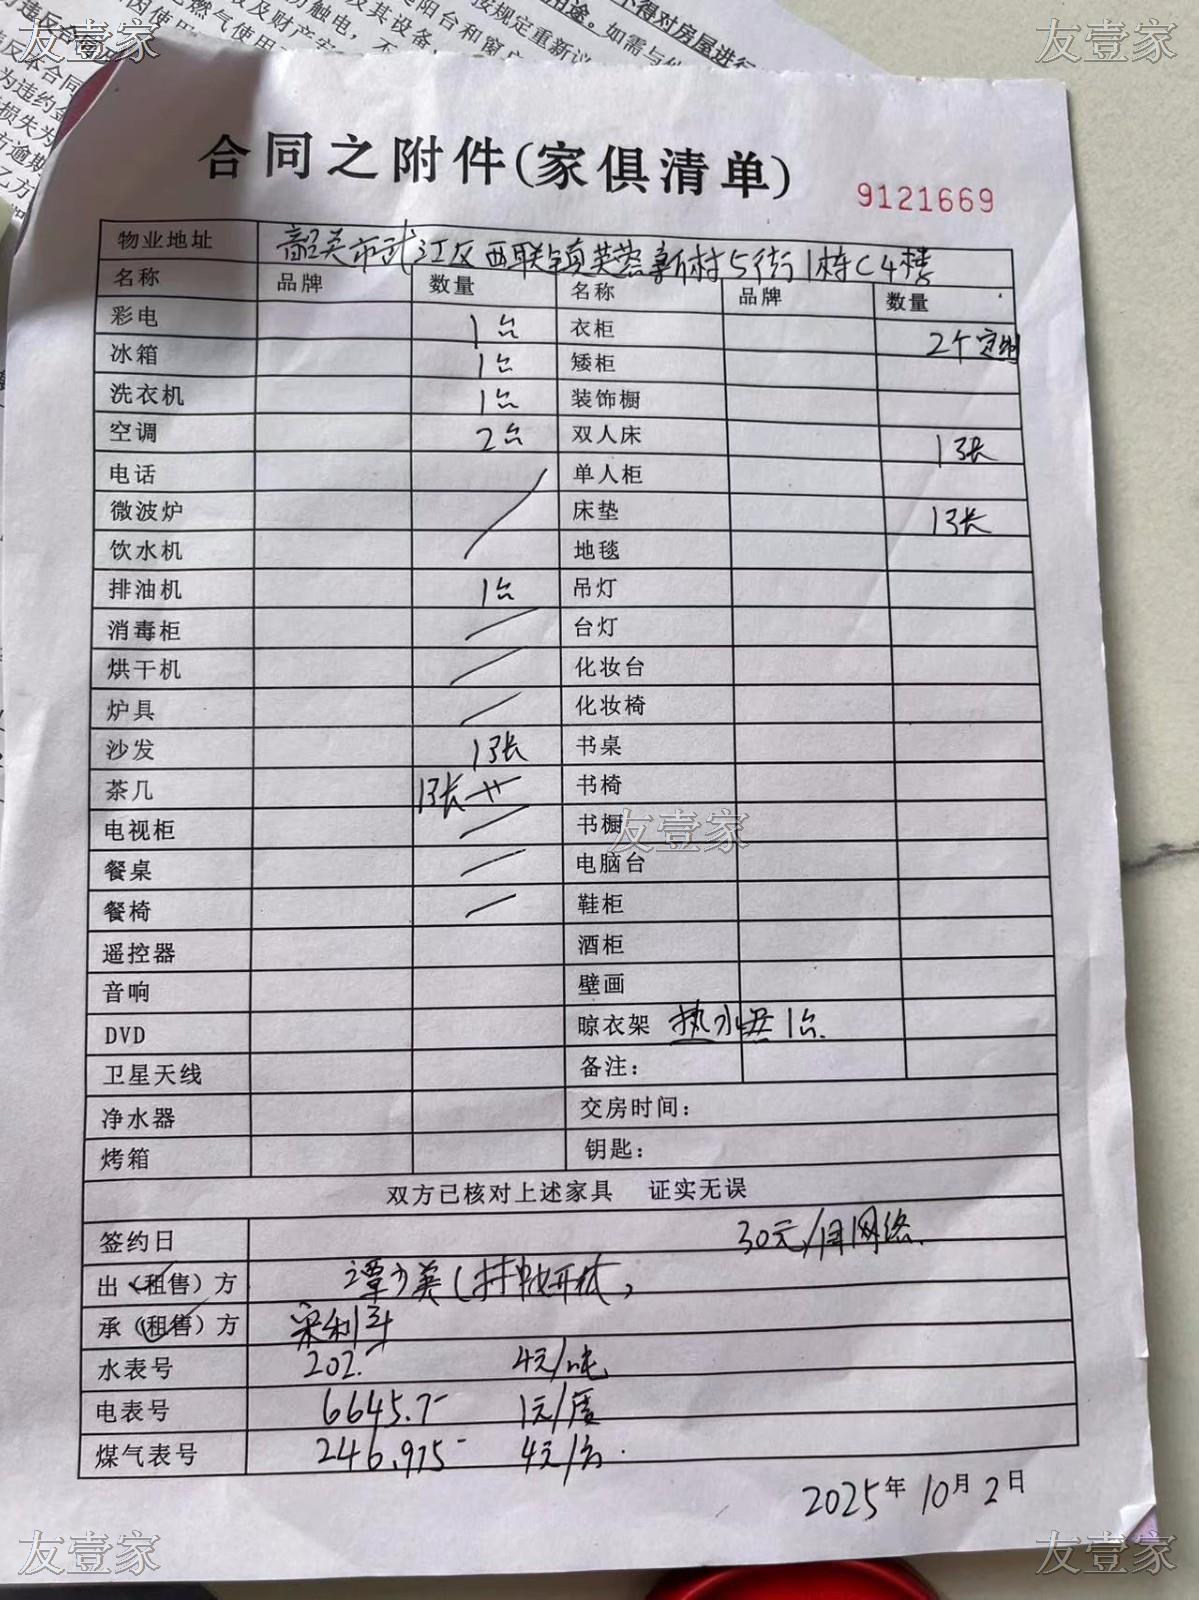 友壹家
友壹家
合同之附件(家俱清单)
9121669
物业地址 韶关市武江区西联镇芙蓉新村5街1栋C4楼
名称 品牌 数量 名称 品牌 数量
彩电 1台 衣柜 2个定制
冰箱 1台 矮柜
洗衣机 1台 装饰橱
空调 2台 双人床 1张
电话 单人柜
微波炉 床垫 1张
饮水机 地毯
排油机 1台 吊灯
消毒柜 台灯
烘干机 化妆台
炉具 化妆椅
沙发 1张 书桌
茶几 1张 书椅
电视柜 书橱
友壹家
餐桌 电脑台
餐椅 鞋柜
遥控器 酒柜
音响 壁画
DVD 晾衣架 热水器 1台
卫星天线 备注：
净水器 交房时间：
烤箱 钥匙：
双方已核对上述家具 证实无误
签约日 30元/月网络
出（租售）方
承（租售）方
水表号 202. 4元/吨
电表号 6645.7 1元/度
煤气表号 246.975 4元/方
2025年10月2日
友壹家
友壹家